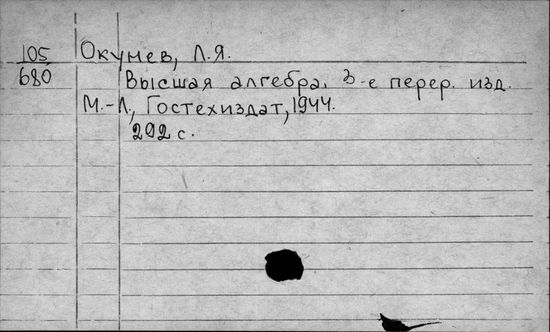 105 Окунев, Л.Я.
680 Высшая алгебра. 3-е перер. изд.
М.-Л., Гостехиздат, 1944.
292 с.